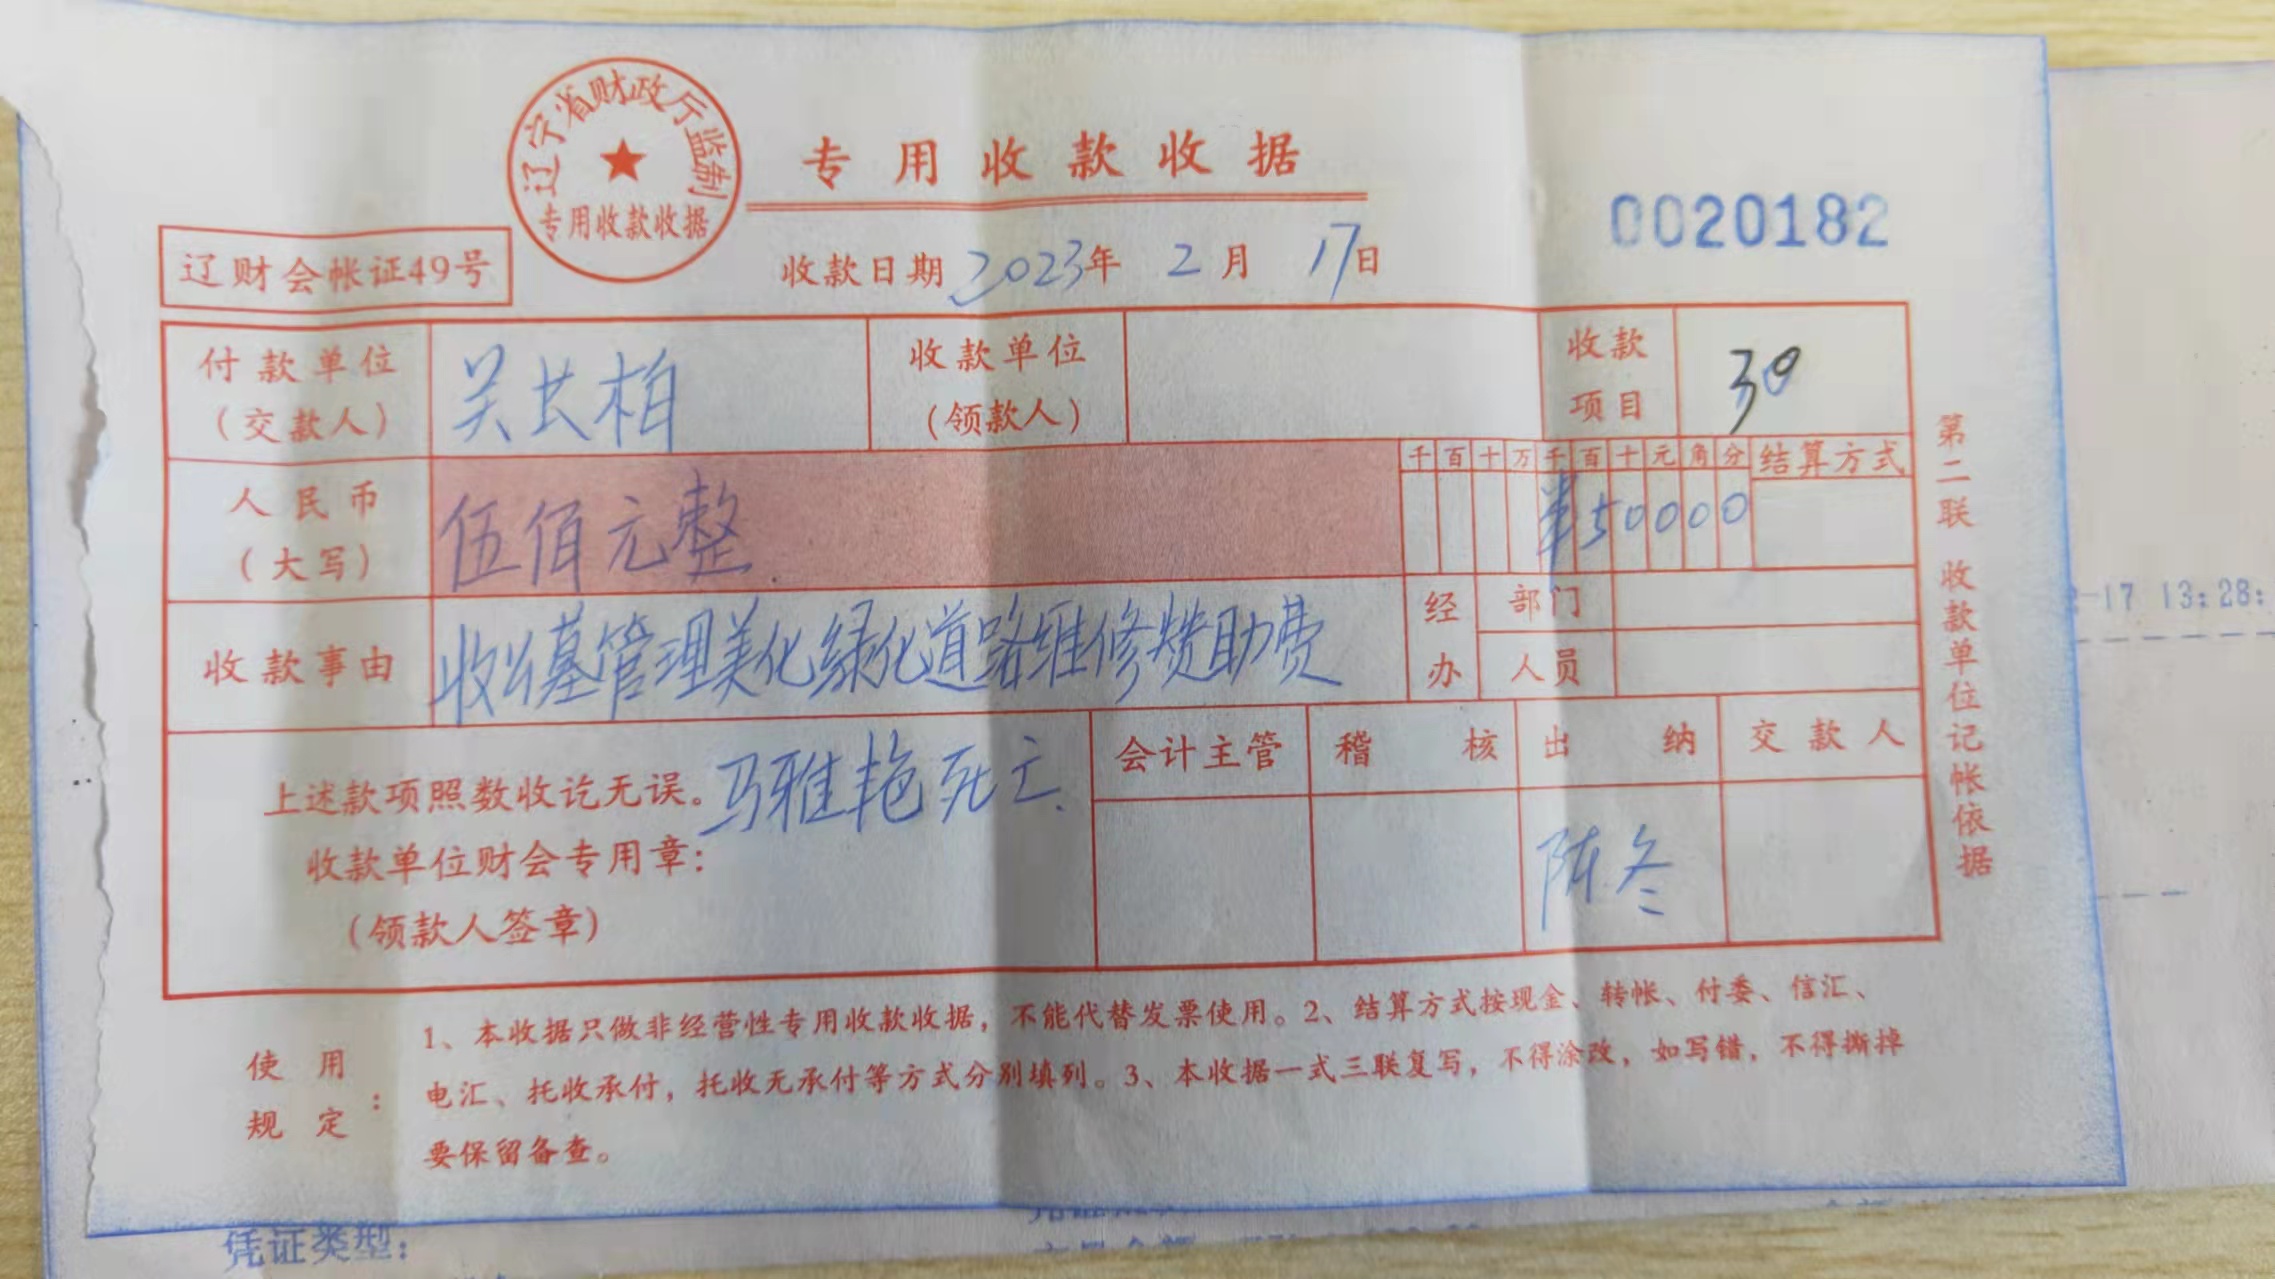 辽宁省财政厅监制
专用收款收据
专用收款收据
0020182
辽财会帐证49号
收款日期 2023年 2月 17日
付款单位
(交款人)
吴长柏
收款单位
(领款人)
收款
项目
30
人民币
(大写)
伍佰元整
千百十万千百十元角分
¥50000
结算方式
收款事由
收公墓管理美化绿化道路维修赞助费
经办
部门
人员
上述款项照数收讫无误。马雅艳死亡.
收款单位财会专用章:
(领款人签章)
会计主管
稽核
出纳
交款人
陈冬
第二联 收款单位记帐依据
使用
规定:
1、本收据只做非经营性专用收款收据,不能代替发票使用。2、结算方式按现金、转帐、付委、信汇、
电汇、托收承付,托收无承付等方式分别填列。3、本收据一式三联复写,不得涂改,如写错,不得撕掉
要保留备查。
-17 13:28:
凭证类型: